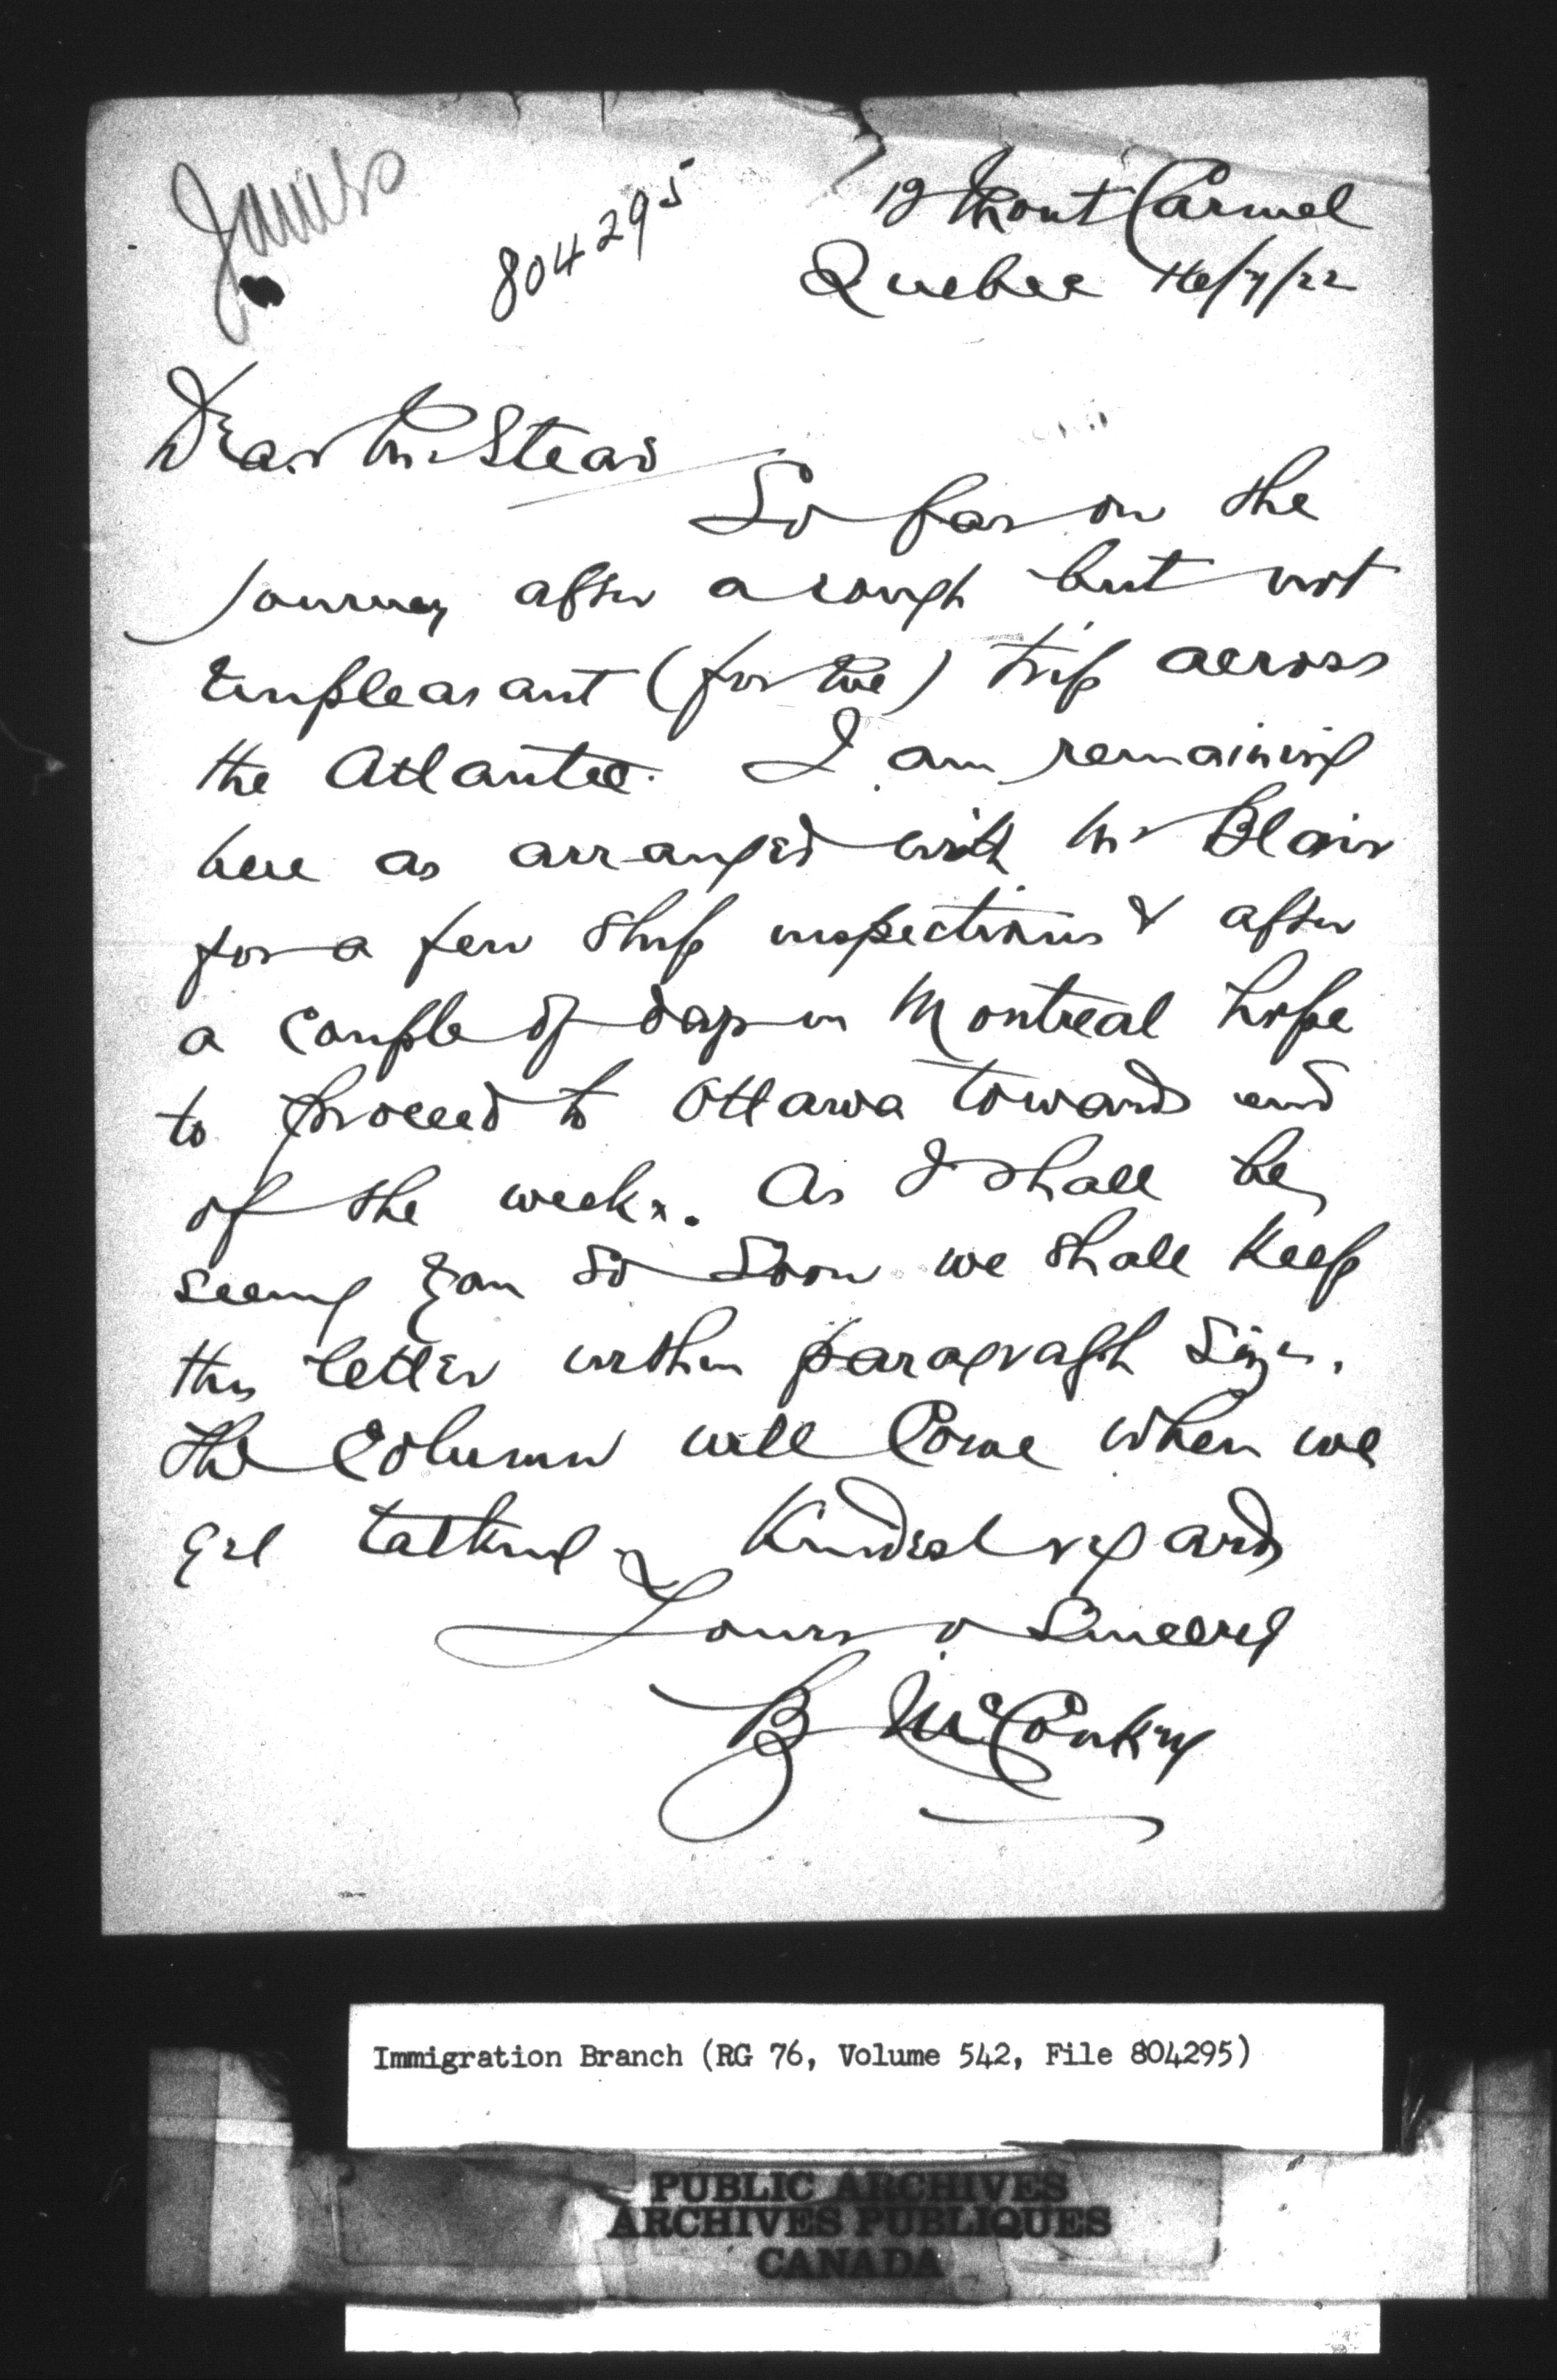 James
804295
19 Mont Carmel
Quebec 16/7/22
Dear Mr Stead
So far on the
journey after a rough but not
unpleasant (for me) trip across
the Atlantic. I am remaining
here as arranged with Mr Blair
for a few ship inspections & after
a couple of days in Montreal hope
to proceed to Ottawa towards end
of the week. As I shall be
seeing you so soon we shall keep
this letter within paragraph size.
The Column will Come when we
get talking. Kindest regards
Yours Sincerely
B McConkey
Immigration Branch (RG 76, Volume 542, File 804295)
PUBLIC ARCHIVES
ARCHIVES PUBLIQUES
CANADA